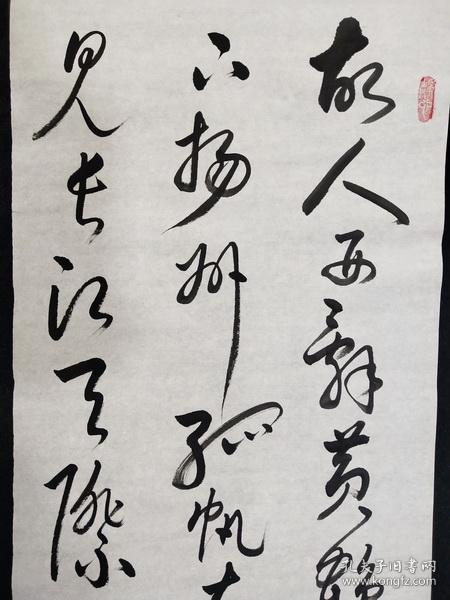 故人西辞黄鹤
下扬州孤帆
见长江天际
孔夫子旧书网